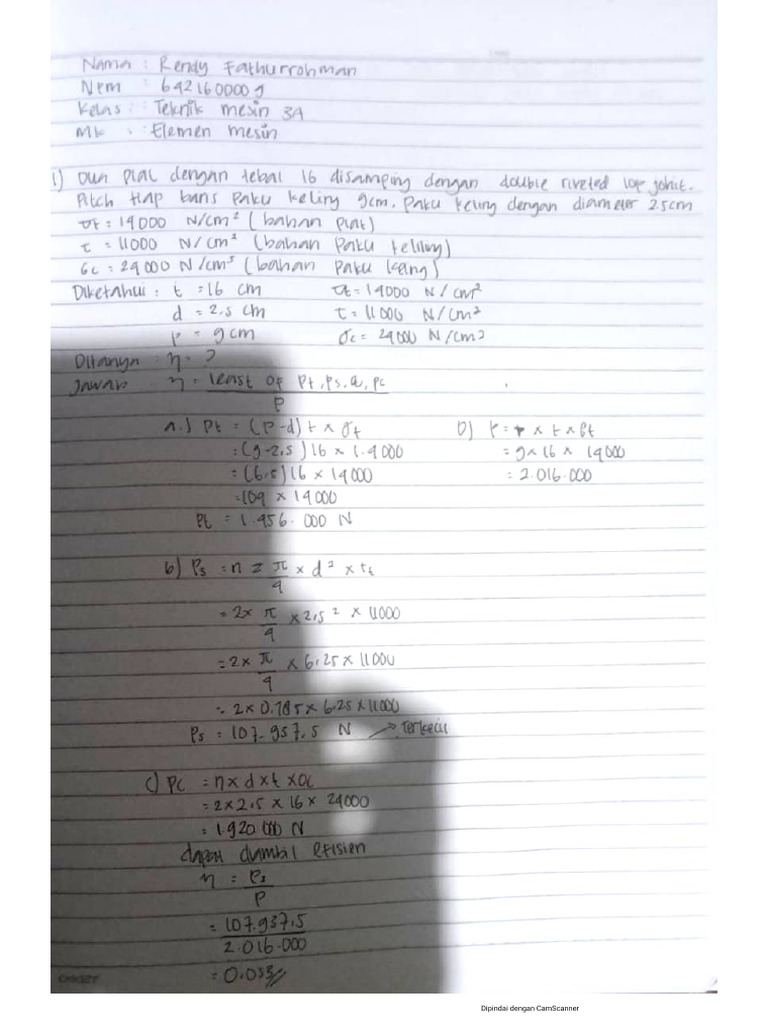 Nama : Rendy Fathurrohman
Npm : 6421600009
Kelas : Teknik mesin 3A
Mk : Elemen mesin
1) Dua plat dengan tebal 16 disamping dengan double riveted lap johit.
Pitch tiap baris paku keliny 9cm. paku keling dengan diameter 2.5cm
σt = 14000 N/cm² (bahan plat)
τ = 11000 N/cm² (bahan paku keliling)
σc = 24000 N/cm³ (bahan paku keling)
Diketahui : t = 16 cm σt = 14000 N/cm²
d = 2.5 cm τ = 11000 N/cm²
p = 9cm σc = 24000 N/cm²
Ditanya : η = ?
Jawab η = least of Pt, Ps, a, pc
P
a.) Pt = (p-d) t × σt D) P = p × t × σt
= (9-2,5) 16 × 1.4000 = 9 × 16 × 14000
= (6.5) 16 × 14000 = 2.016.000
= 104 × 14000
Pt = 1.456.000 N
b) Ps = n = π × d² × tt
4
= 2 × π × 2,5² × 11000
4
= 2 × π × 6.25 × 11000
4
= 2 × 0.785 × 6.25 × 11000
Ps = 107.937.5 N → Terkecil
c) Pc = n × d × t × σc
= 2 × 2,5 × 16 × 24000
= 1.920 000 N
dapat diambil efisien
η = Ps
P
= 107.937,5
2.016.000
= 0.053//
Dipindai dengan CamScanner